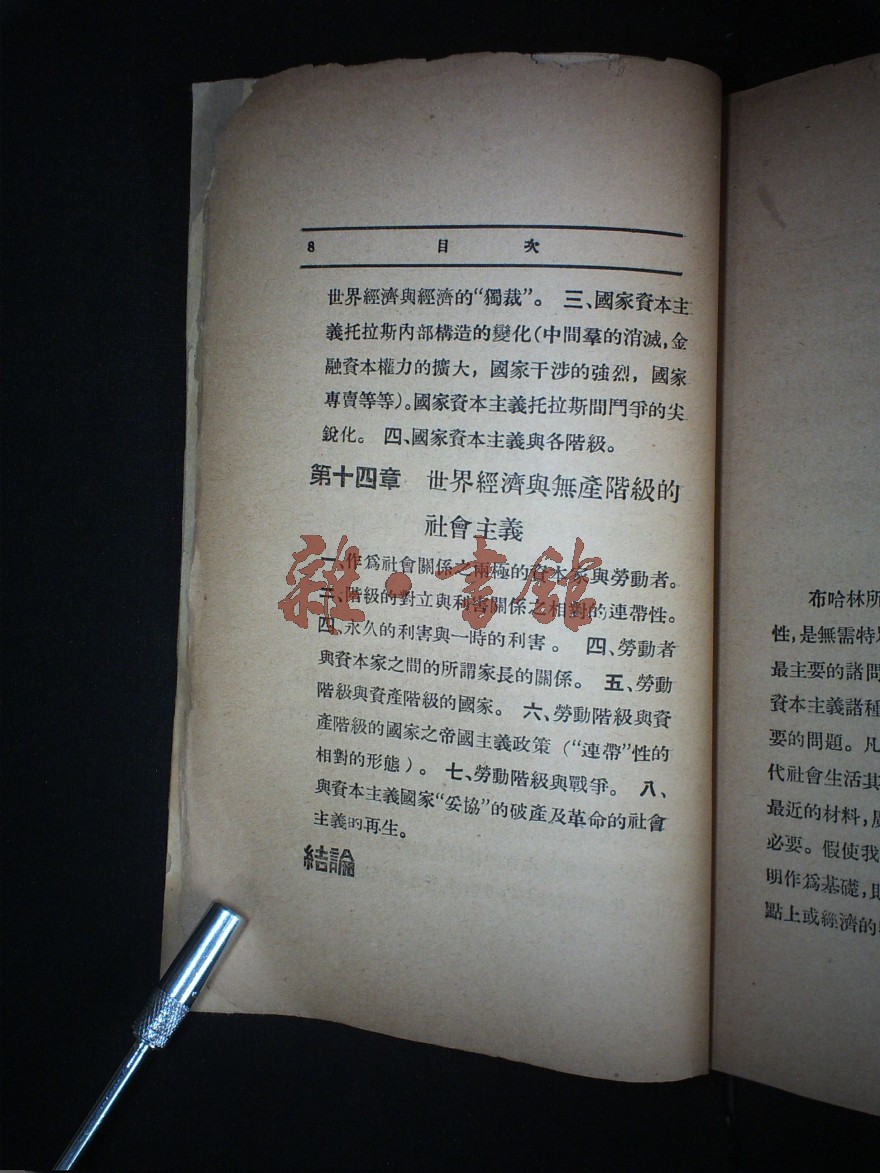 8 目次
世界經濟與經濟的“獨裁”。 三、國家資本主
義托拉斯內部構造的變化(中間羣的消滅,金
融資本權力的擴大,國家干涉的強烈,國家
專賣等等)。國家資本主義托拉斯間鬥爭的尖
銳化。 四、國家資本主義與各階級。
第十四章 世界經濟與無產階級的
社會主義
一、作爲社會關係之兩極的資本家與勞動者。
三、階級的對立與利害關係之相對的連帶性。
四、永久的利害與一時的利害。 四、勞動者
與資本家之間的所謂家長的關係。 五、勞動
階級與資產階級的國家。 六、勞動階級與資
產階級的國家之帝國主義政策(“連帶”性的
相對的形態)。 七、勞動階級與戰爭。 八、
與資本主義國家“妥協”的破產及革命的社會
主義的再生。
結論
雜·書館
布哈林所
性,是無需特
最主要的諸問
資本主義諸種
要的問題。凡
代社會生活其
最近的材料,
必要。假使我
明作爲基礎,
點上或經濟的